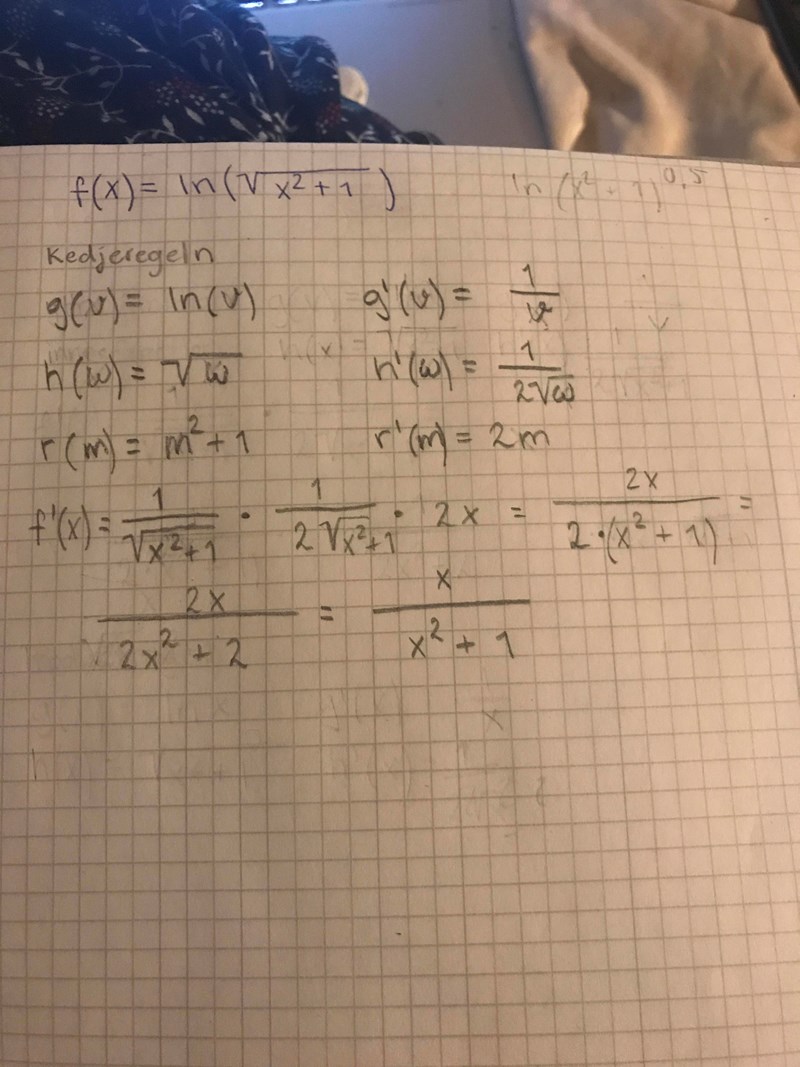 f(x) = ln(√(x² + 1)) ln(x² + 1)^0,5
Kedjeregeln
g(v) = ln(v) g'(v) = 1/v
h(w) = √w h'(w) = 1/(2√w)
r(m) = m² + 1 r'(m) = 2m
f'(x) = 1/√(x² + 1) · 1/(2√(x² + 1)) · 2x = 2x/(2·(x² + 1)) =
2x/(2x² + 2) = x/(x² + 1)